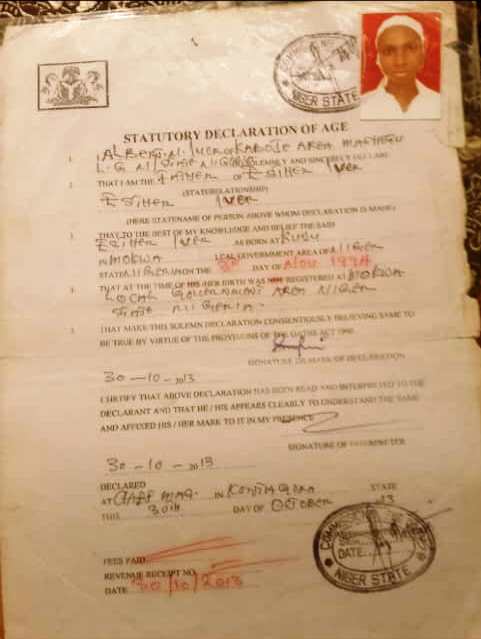 COMMISSIONER
NIGER STATE
STATUTORY DECLARATION OF AGE
1. I ALBERT N. IVER OF KABOJE AREA MAGAMA
L.G NIGER NIGERIA SOLEMNLY AND SINCERELY DECLARE
2. THAT I AM THE FATHER OF ESTHER IVER
(STATERELATIONSHIP)
ESTHER IVER
(HERE STATENAME OF PERSON ABOVE WHOM DECLARATION IS MADE)
3. THAT TO THE BEST OF MY KNOWLEDGE AND BELIEF THE SAID
ESTHER IVER AS BORN AT KUDU
IN MOKWA LCAL GOVERNMENT AREA OF NIGER
STATE NIGERIA ON THE DAY OF NOV 1994
4. THAT AT THE TIME OF HIS /HER BIRTH WAS NOT REGISTERED AT MOKWA
LOCAL GOVERNMENT AREA NIGER
STATE NIGERIA.
THAT MAKE THIS SOLEMN DECLARATION CONSENTIOUSLY BELIEVING SAME TO
BE TRUE BY VIRTUE OF THE PROVISIONS OF THE OATHS ACT 1990
SIGNATURE OR MARK OF DECLARATION
30-10-2013
I CERTIFY THAT ABOVE DECLARATION HAS BEEN READ AND INTERPRETED TO THE
DECLARANT AND THAT HE / HIS APPEARS CLEARLY TO UNDERSTAND THE SAME
AND AFFIXED HIS / HER MARK TO IT IN MY PRESENCE
SIGNATURE OF INTERPRETER
30-10-2013
DECLARED
AT IN KONTAGORA STATE
THIS 30th DAY OF OCTOBER 13
FEES PAID
REVENUE RECEIPT NO.
DATE 30/10/2013
COMMISSIONER
DATE
NIGER STATE